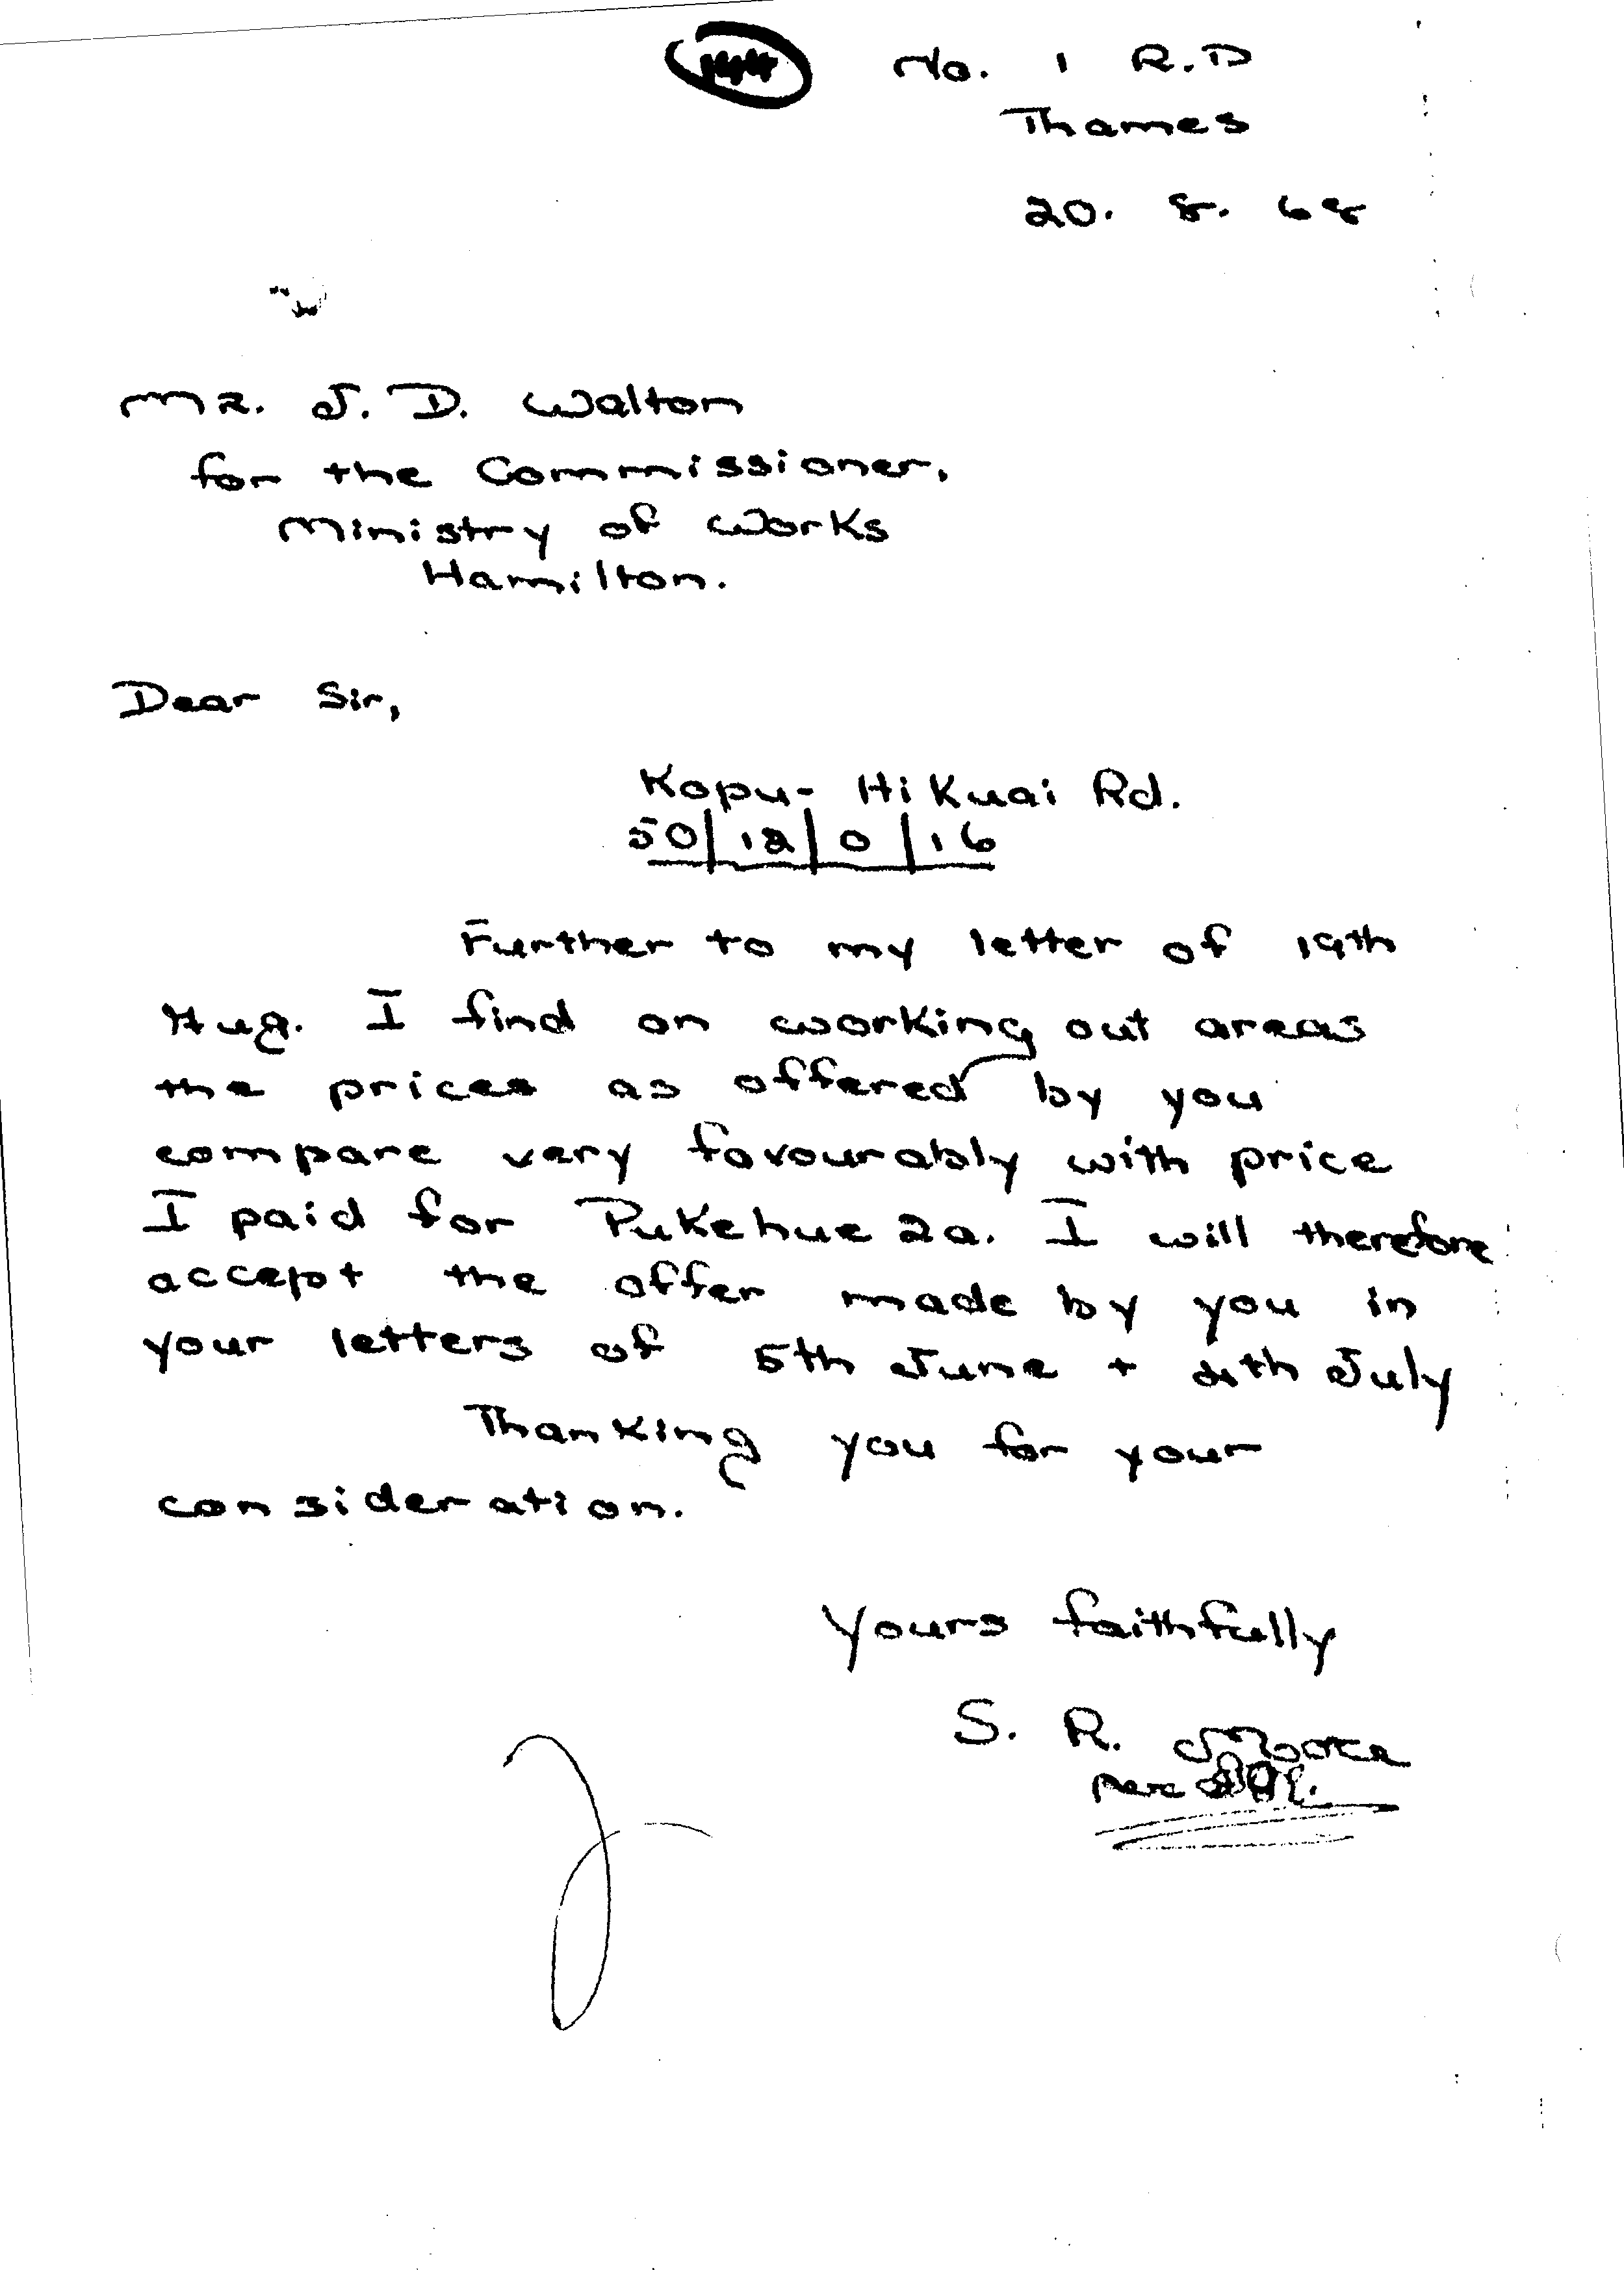 144
No. 1 R.D
Thames
20. 8. 68
Mr. J. D. Walton
for the Commissioner,
Ministry of Works
Hamilton.
Dear Sir,
Kopu- Hikuai Rd.
50/12/0/16
Further to my letter of 19th
Aug. I find on working out areas
the prices as offered by you
compare very favourably with price
I paid for Pukehue 2a. I will therefore
accept the offer made by you in
your letters of 5th June + 4th July
Thanking you for your
consideration.
Yours faithfully
S. R. Moore
per